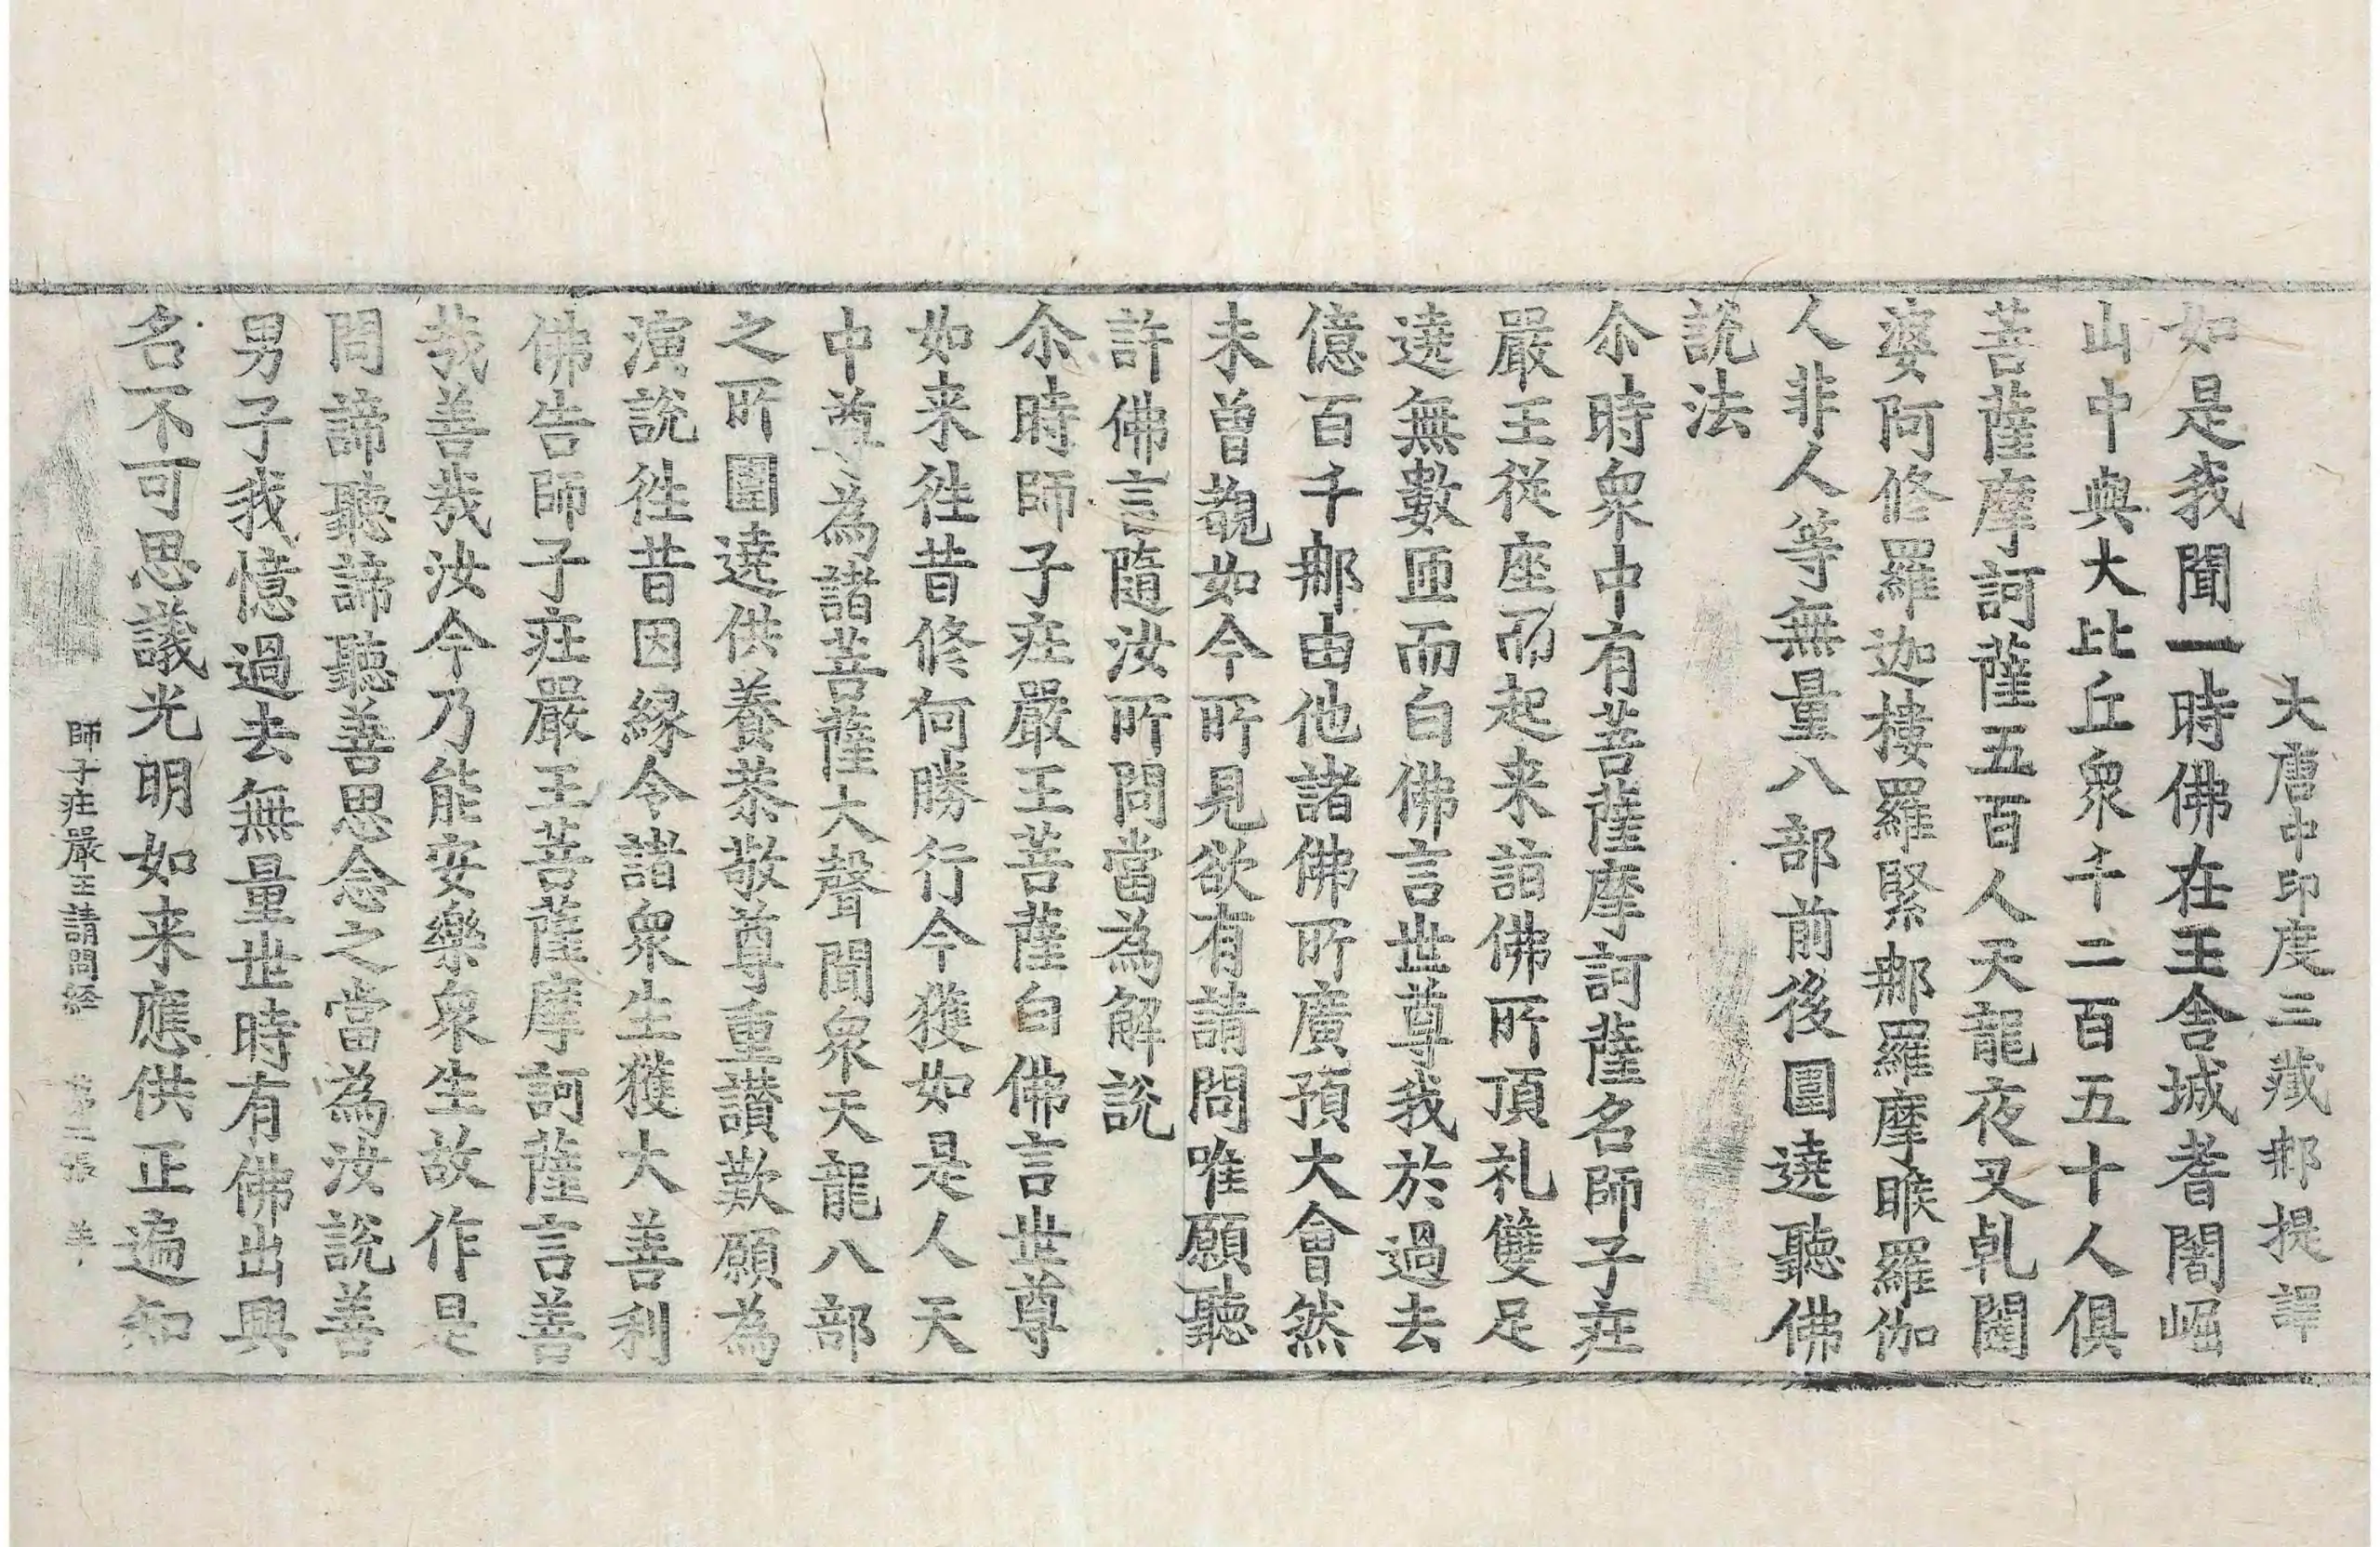 大唐中印度三藏那提譯
如是我聞一時佛在王舍城耆闍崛
山中與大比丘衆千二百五十人俱
菩薩摩訶薩五百人天龍夜叉乹闥
婆阿修羅迦樓羅緊那羅摩睺羅伽
人非人等無量八部前後圍遶聽佛
說法
尒時衆中有菩薩摩訶薩名師子莊
嚴王從座而起来詣佛所頂礼雙足
遶無數匝而白佛言世尊我於過去
億百千那由他諸佛所廣預大會然
未曾覩如今所見欲有請問唯願聽
許佛言隨汝所問當為解說
尒時師子莊嚴王菩薩白佛言世尊
如来徃昔修何勝行今獲如是人天
中尊為諸菩薩大聲聞衆天龍八部
之所圍遶供養恭敬尊重讃歎願為
演說徃昔因縁令諸衆生獲大善利
佛告師子莊嚴王菩薩摩訶薩言善
哉善哉汝今乃能安樂衆生故作是
問諦聽諦聽善思念之當為汝說善
男子我憶過去無量世時有佛出興
名不可思議光明如来應供正遍知
師子莊嚴王請問経 第二張 羊